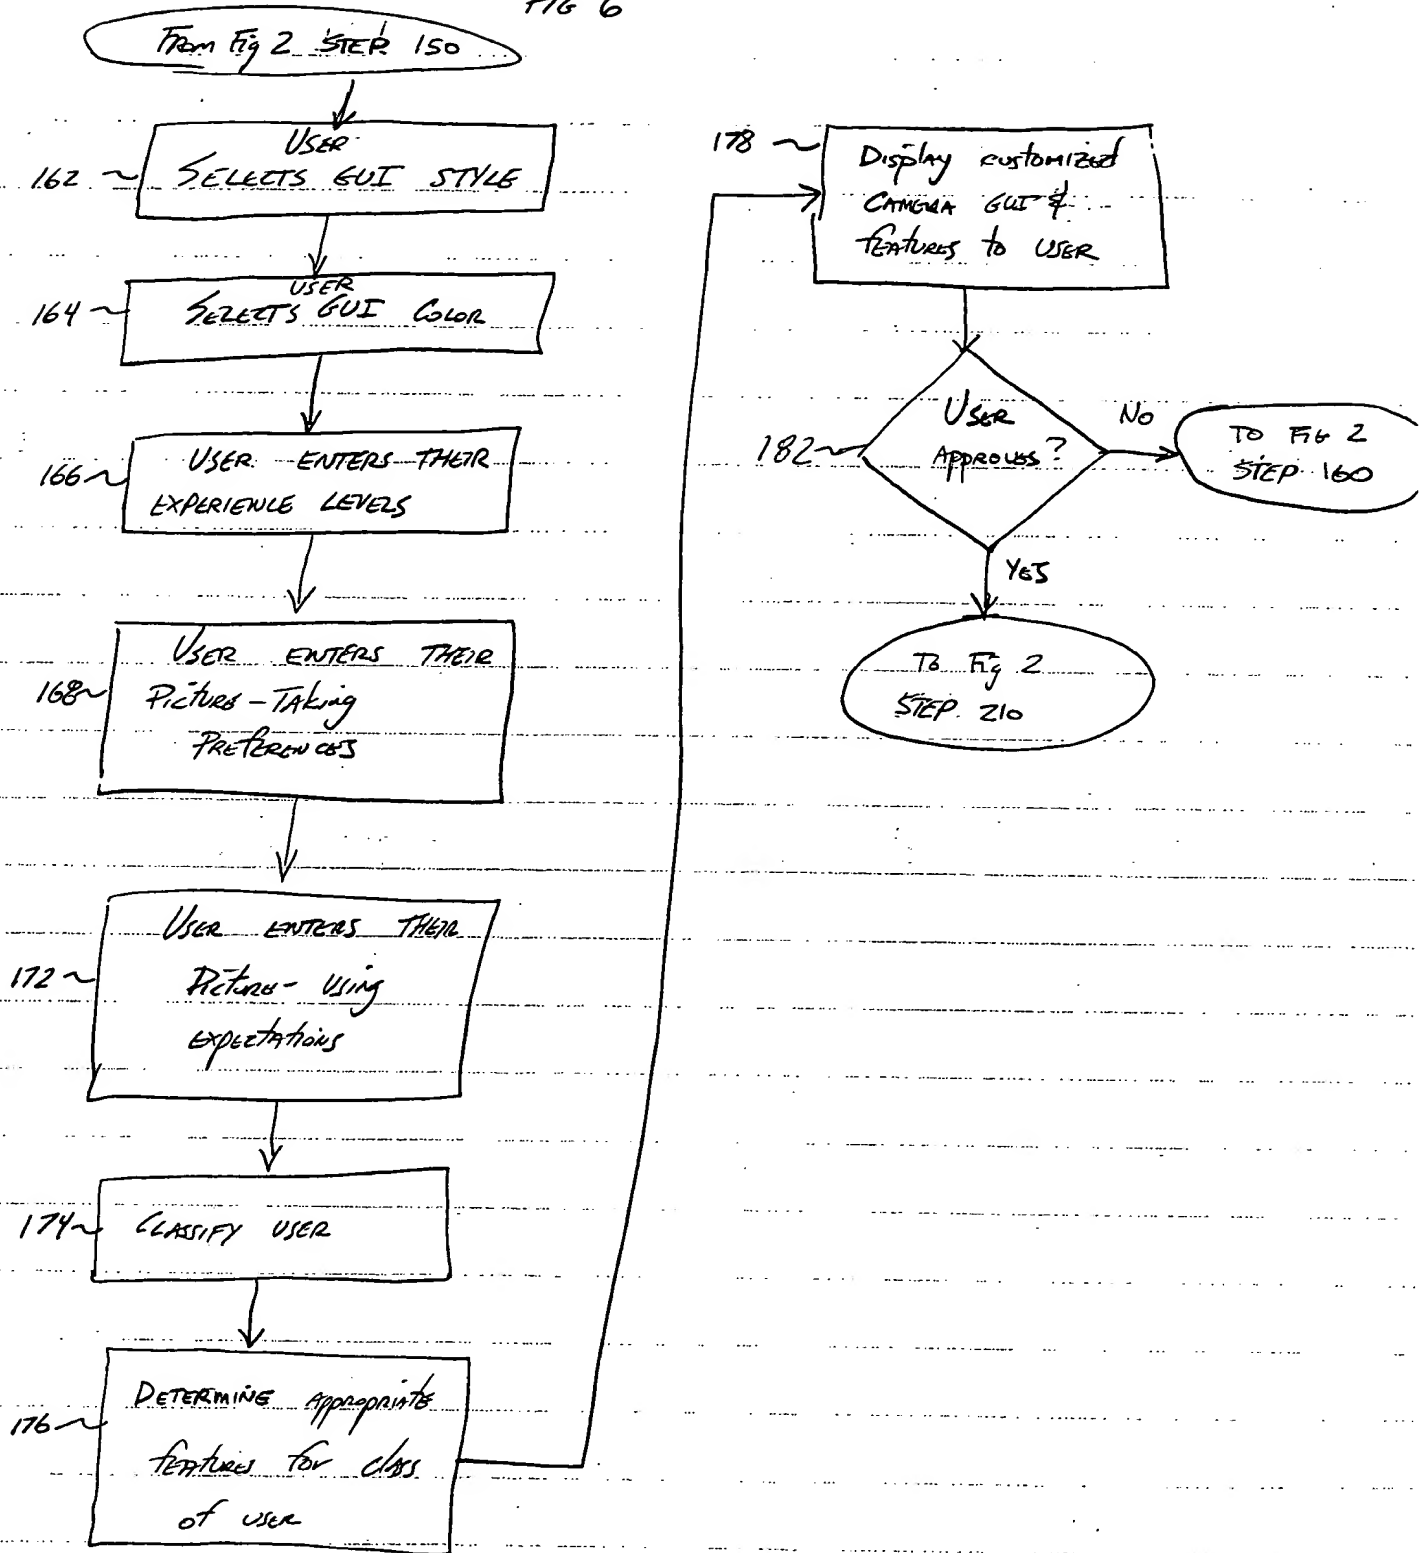 FIG 6
From Fig 2 STEP 150
162
USER
SELECTS GUI STYLE
164
USER
SELECTS GUI COLOR
166
USER ENTERS THEIR
EXPERIENCE LEVELS
168
USER ENTERS THEIR
Picture-Taking
PREFERENCES
172
USER ENTERS THEIR
Picture-Using
expectations
174
CLASSIFY USER
176
DETERMINE Appropriate
features for class
of user
178
Display customized
CAMERA GUI &
features to USER
182
USER
APPROVES?
NO
TO FIG 2
STEP 160
YES
To Fig 2
STEP 210